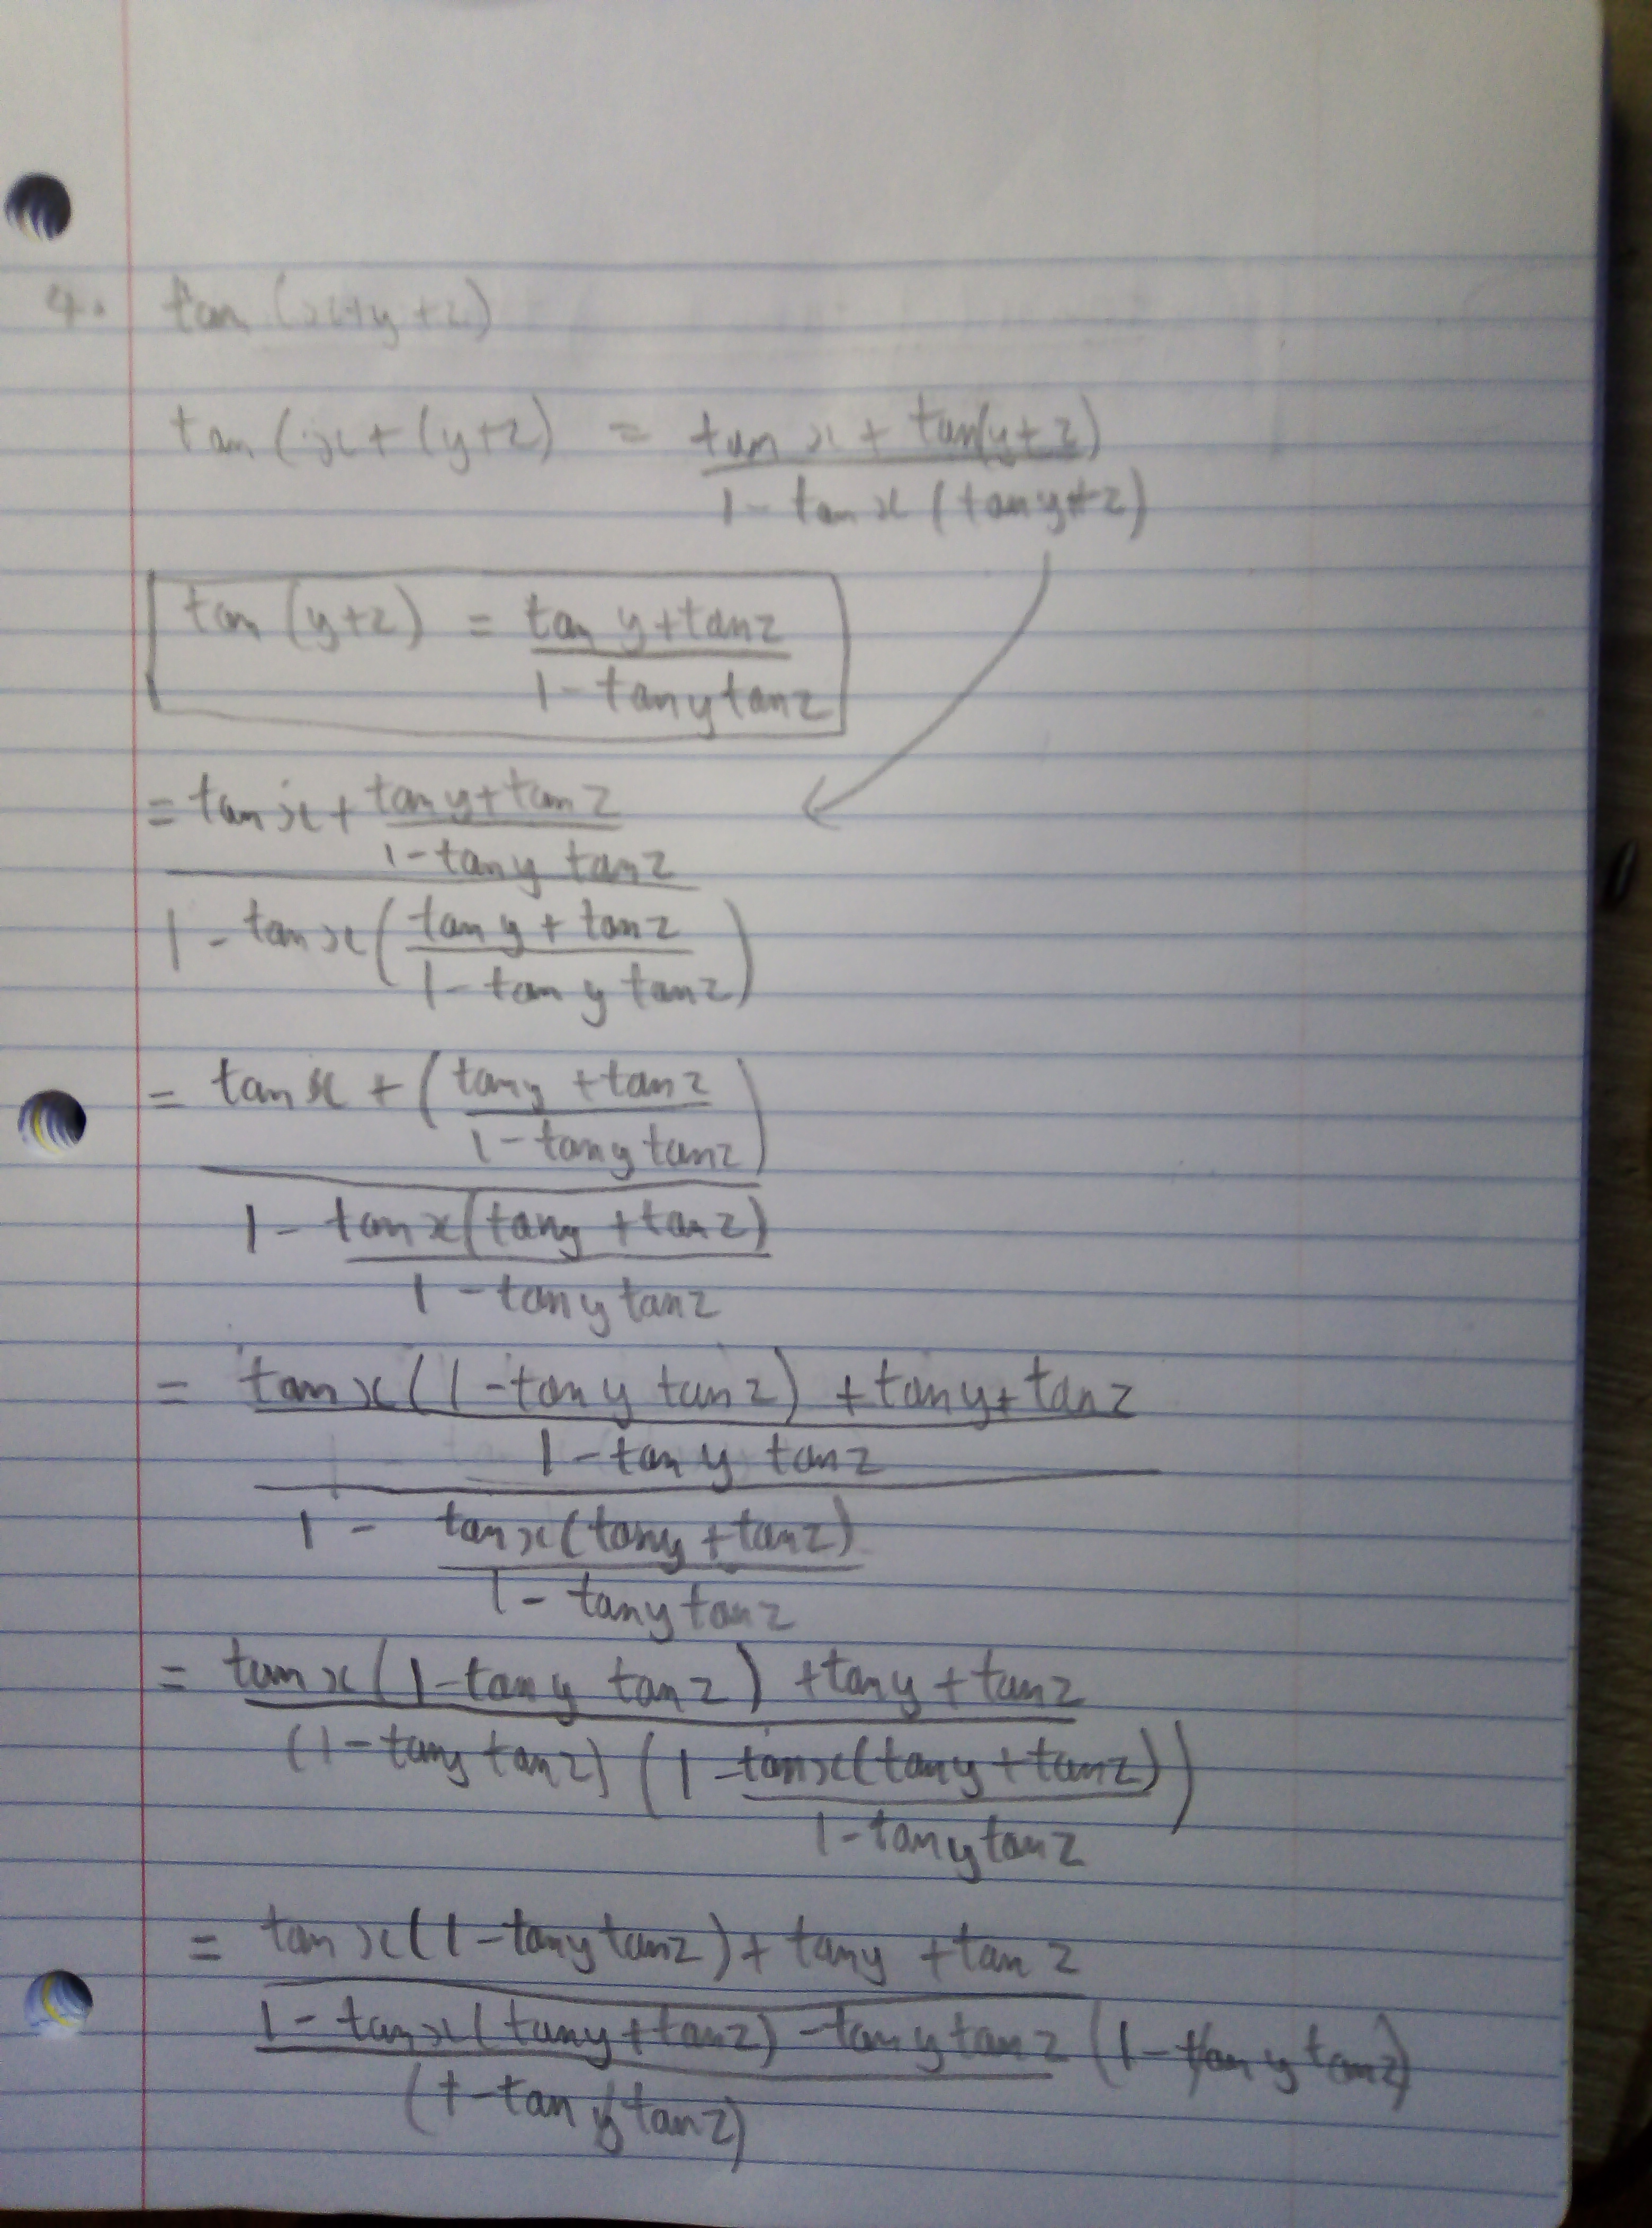 4. tan (x+y+z)
tan (x+(y+z) = tan x + tan(y+z)
1 - tan x (tan y+z)
tan (y+z) = tan y+tan z
1 - tan y tan z
= tan x + tan y+tan z
1-tan y tan z
1 - tan x ( tan y + tan z
1 - tan y tan z )
= tan x + ( tan y + tan z
1 - tan y tan z )
1 - tan x (tan y + tan z)
1 - tan y tan z
= tan x (1 - tan y tan z) + tan y + tan z
1 - tan y tan z
1 - tan x (tan y + tan z)
1 - tan y tan z
= tan x (1-tan y tan z) + tan y + tan z
(1-tan y tan z) (1 - tan x (tan y + tan z))
1 - tan y tan z
= tan x (1 - tan y tan z) + tan y + tan z
1 - tan x (tan y + tan z) - tan y tan z (1 - tan y tan z)
(1 - tan y tan z)